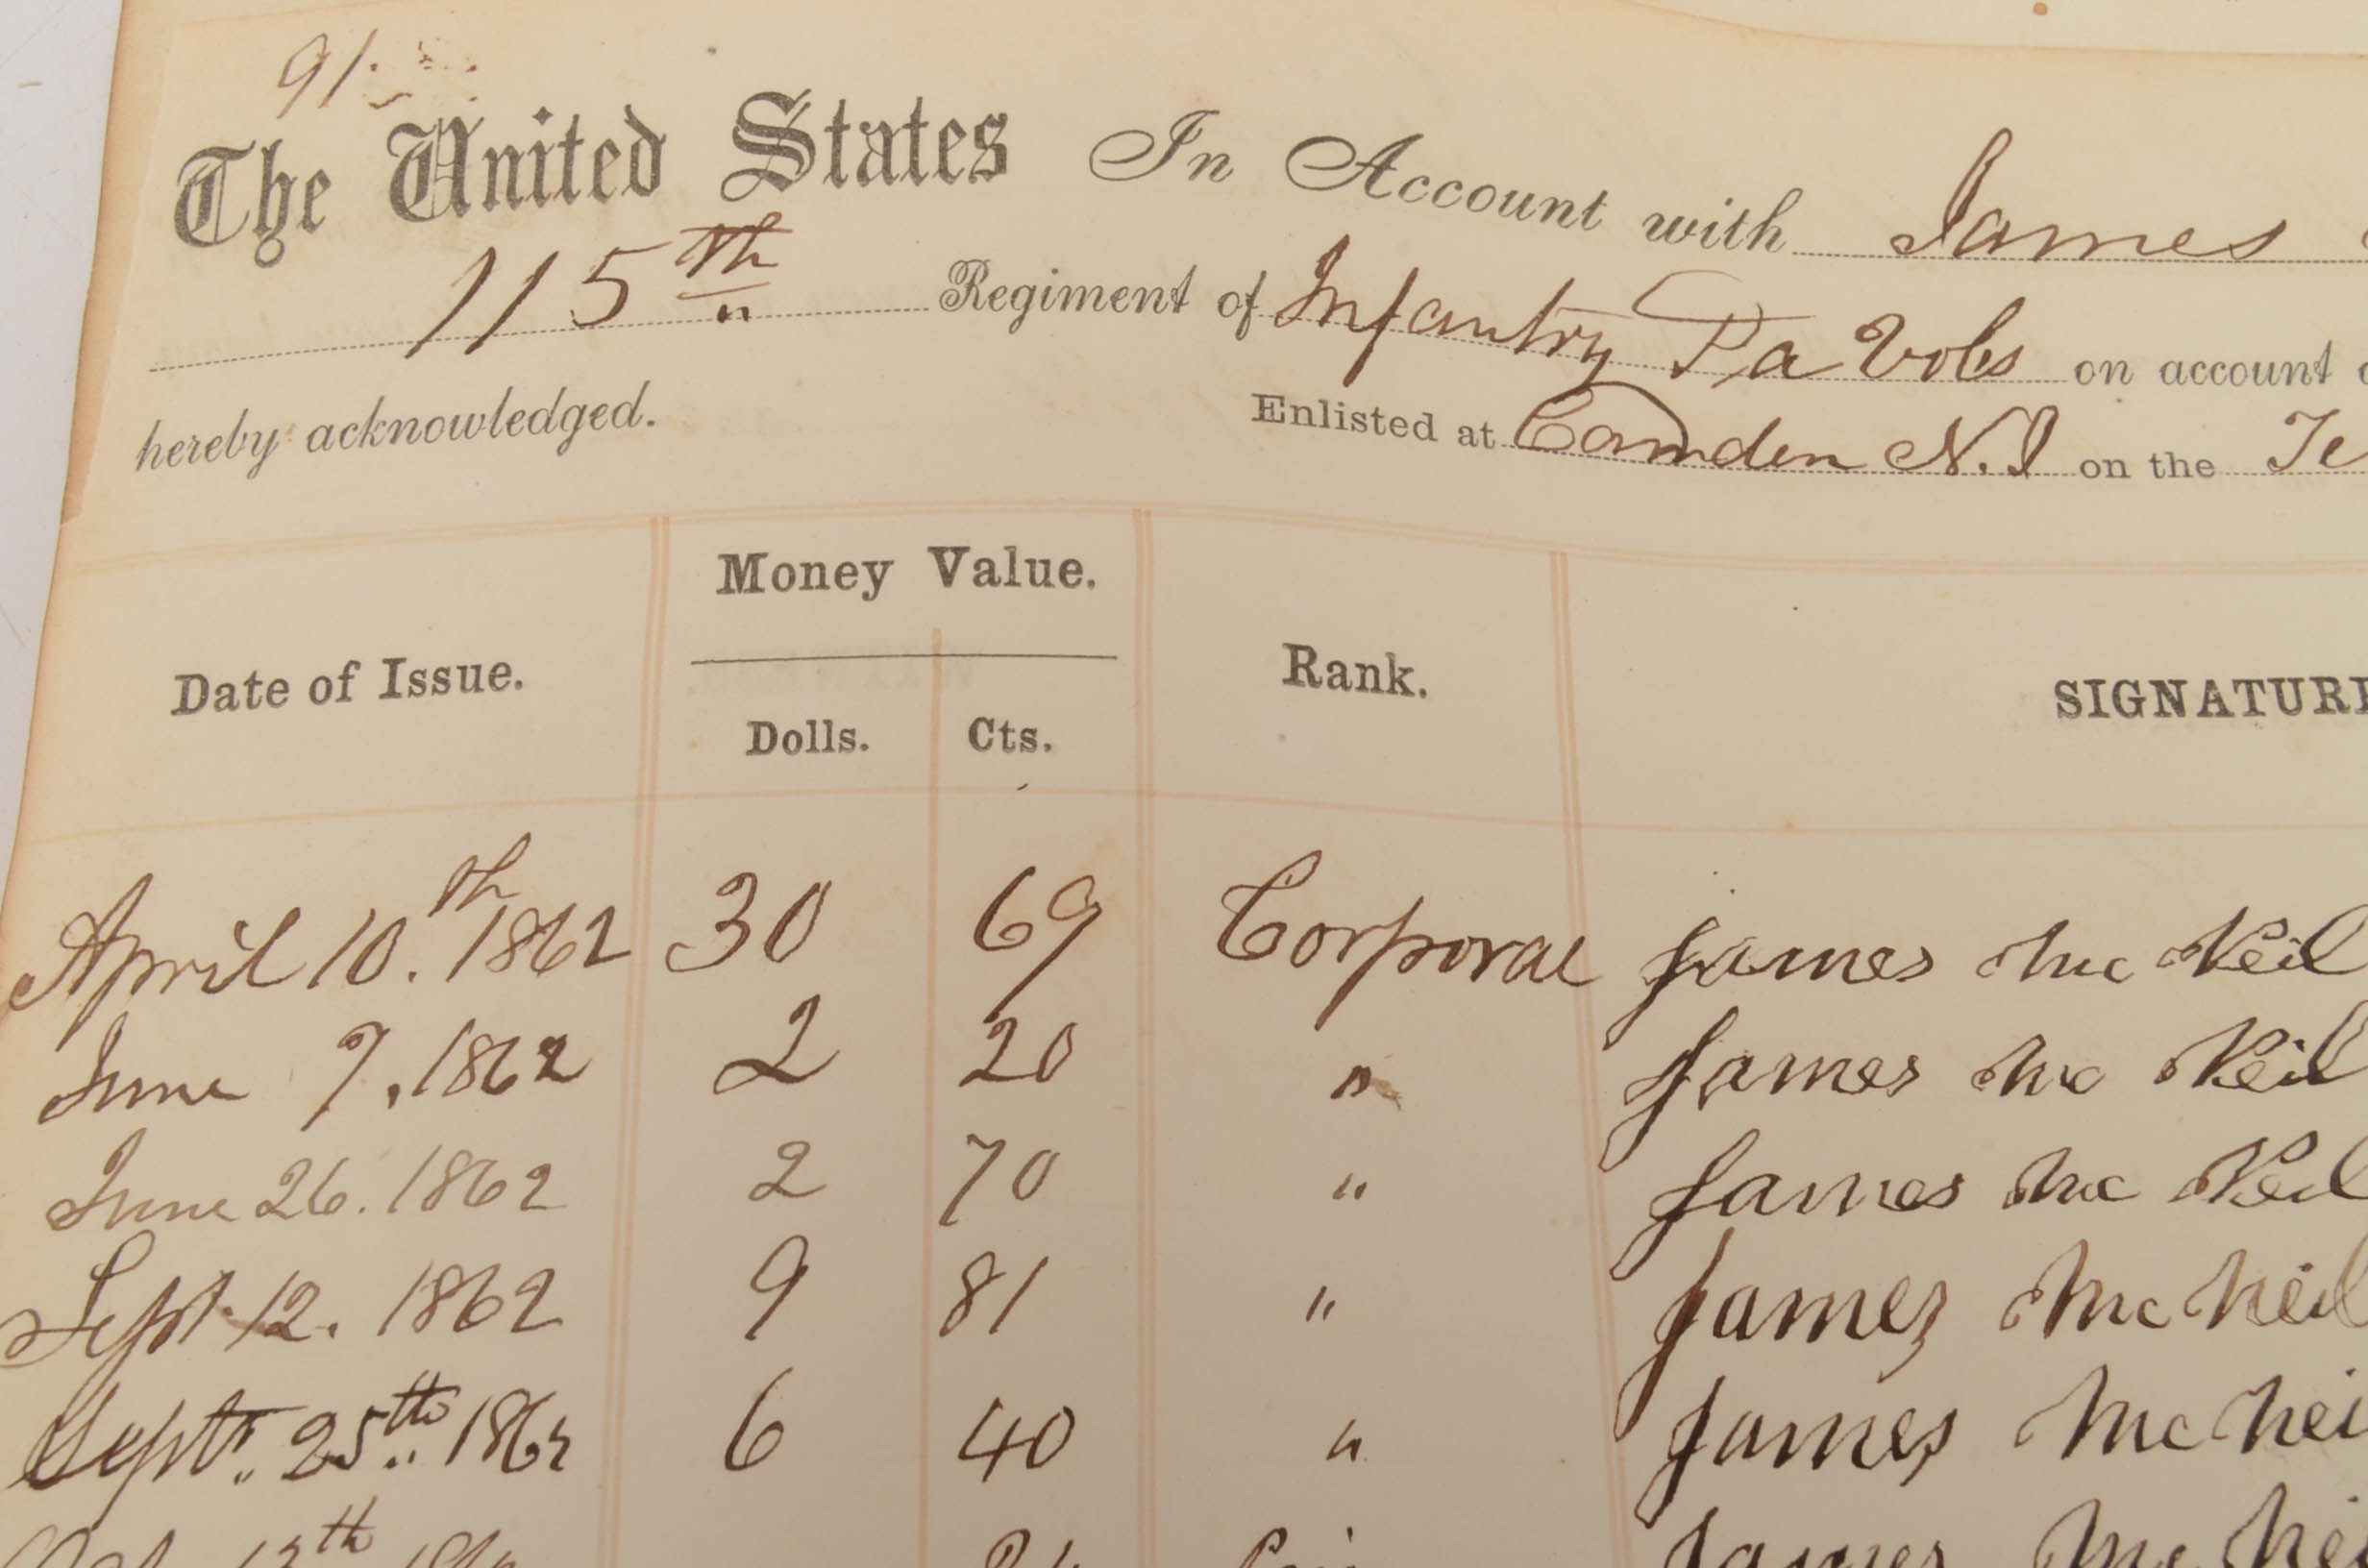 91.
The United States In Account with James
115th Regiment of Infantry Pa Vols on account
hereby acknowledged. Enlisted at Camden N.J on the Te
Date of Issue. Money Value. Dolls. Cts. Rank. SIGNATURE
April 10.th 1862 30 69 Corporal James Mc Neil
June 7, 1862 2 20 " James Mc Neil
June 26. 1862 2 70 " James Mc Neil
Sept. 12. 1862 9 81 " James Mc Neil
Septr. 25th. 1862 6 40 " James Mc Nei
13th James Mc Nei